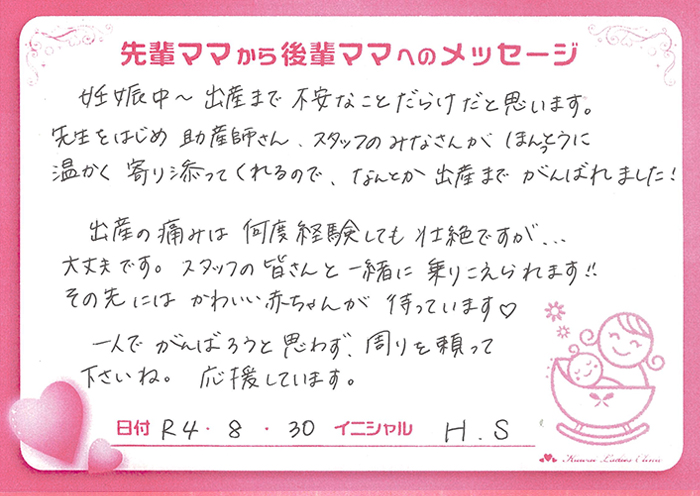 先輩ママから後輩ママへのメッセージ
妊娠中〜出産まで不安なことだらけだと思います。
先生をはじめ助産師さん、スタッフのみなさんがほんとうに
温かく寄り添ってくれるので、なんとか出産までがんばれました!
出産の痛みは何度経験しても壮絶ですが...
大丈夫です。スタッフの皆さんと一緒に乗りこえられます!!
その先にはかわいい赤ちゃんが待っています♡
一人でがんばろうと思わず、周りを頼って
下さいね。応援しています。
日付 R4・8・30 イニシャル H.S
Ladies Clinic